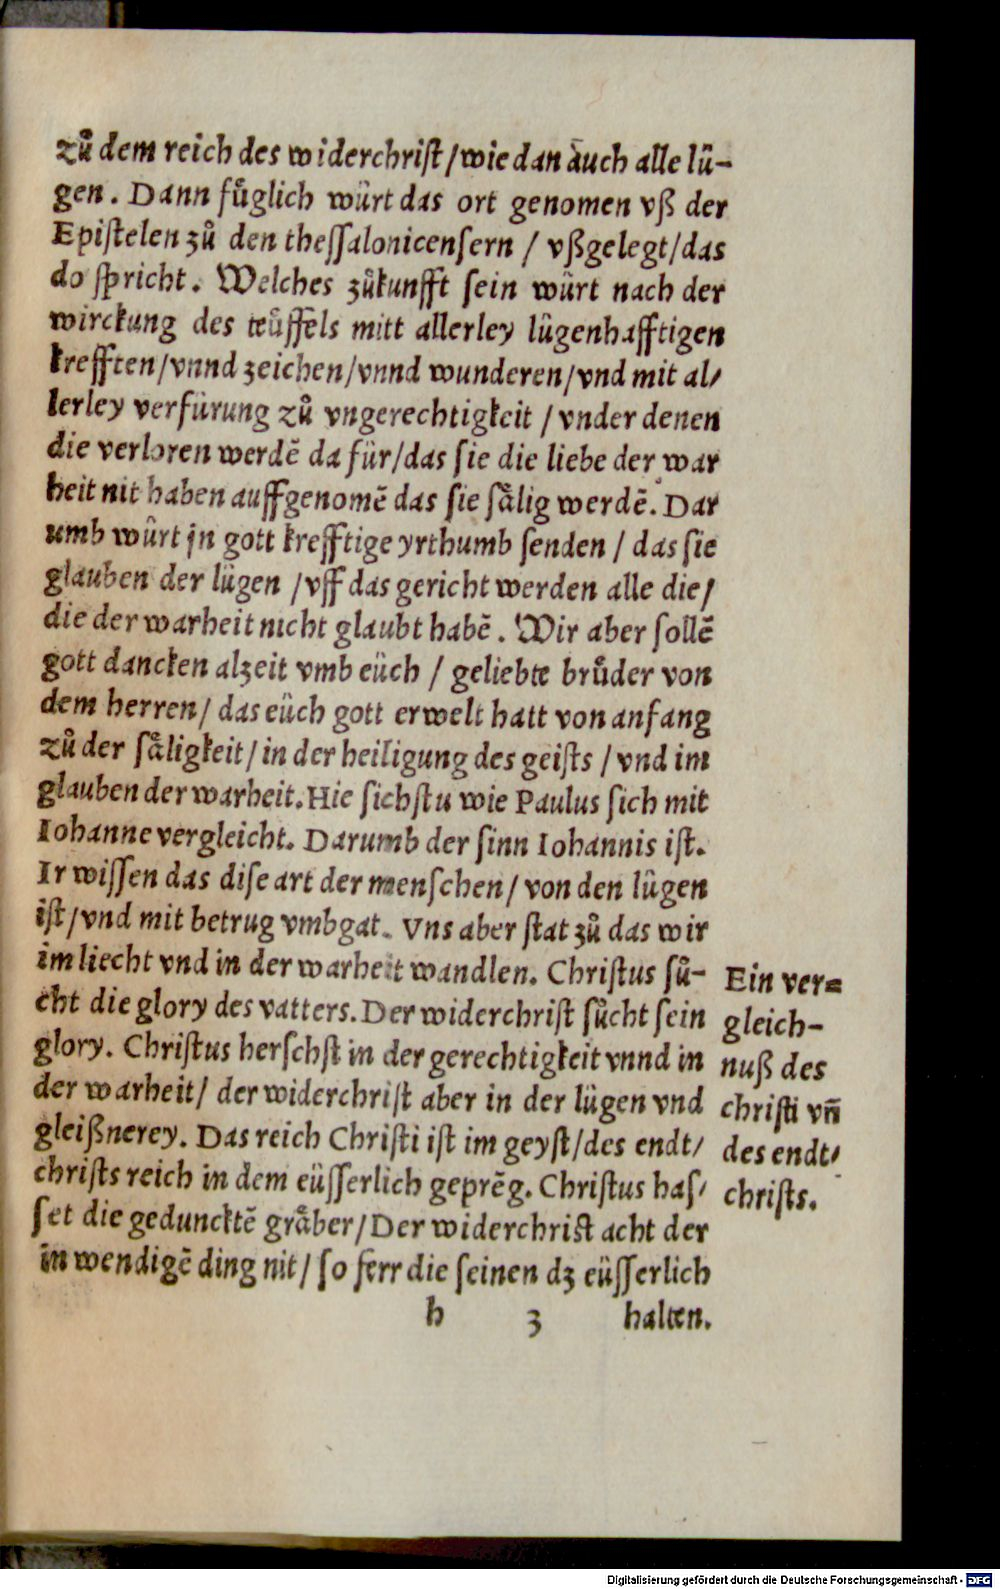 zů dem reich des widerchriſt/wie dan auch alle lü-
gen. Dann fůglich würt das ort genomen vß der
Epiſtelen zů den theſſalonicenſern / vßgelegt/das
do ſpricht. Welches zůkunfft ſein würt nach der
wirckung des teüffels mitt allerley lügenhafftigen
krefften/vnnd zeichen/vnnd wunderen/vnd mit al/
lerley verfürung zů vngerechtigkeit / vnder denen
die verloren werdē da für/das ſie die liebe der war
heit nit haben auffgenomē das ſie ſaͤlig werdē. Dar
umb würt jn gott krefftige yrthumb ſenden / das ſie
glauben der lügen /vff das gericht werden alle die/
die der warheit nicht glaubt habē. Wir aber ſollē
gott dancken alzeit vmb eüch / geliebte brůder von
dem herren/ das eüch gott erwelt hatt von anfang
zů der ſaͤligkeit/ in der heiligung des geiſts / vnd im
glauben der warheit. Hie ſichſtu wie Paulus ſich mit
Iohanne vergleicht. Darumb der ſinn Iohannis iſt.
Ir wiſſen das diſe art der menſchen/ von den lügen
iſt/vnd mit betrug vmbgat. Vns aber ſtat zů das wir
im liecht vnd in der warheit wandlen. Chriſtus ſů-
cht die glory des vatters. Der widerchriſt ſůcht ſein
glory. Chriſtus herſchſt in der gerechtigkeit vnnd in
der warheit/ der widerchriſt aber in der lügen vnd
gleißnerey. Das reich Chriſti iſt im geyſt/des endt/
chriſts reich in dem eüſſerlich geprēg. Chriſtus haſ/
ſet die geduncktē graͤber/Der widerchriſt acht der
in wendigē ding nit/ ſo ferr die ſeinen dʒ eüſſerlich
h 3 halten.
Ein ver=
gleich-
nuß des
chriſti vn̄
des endt/
chriſts.
Digitalisierung gefördert durch die Deutsche Forschungsgemeinschaft - DFG